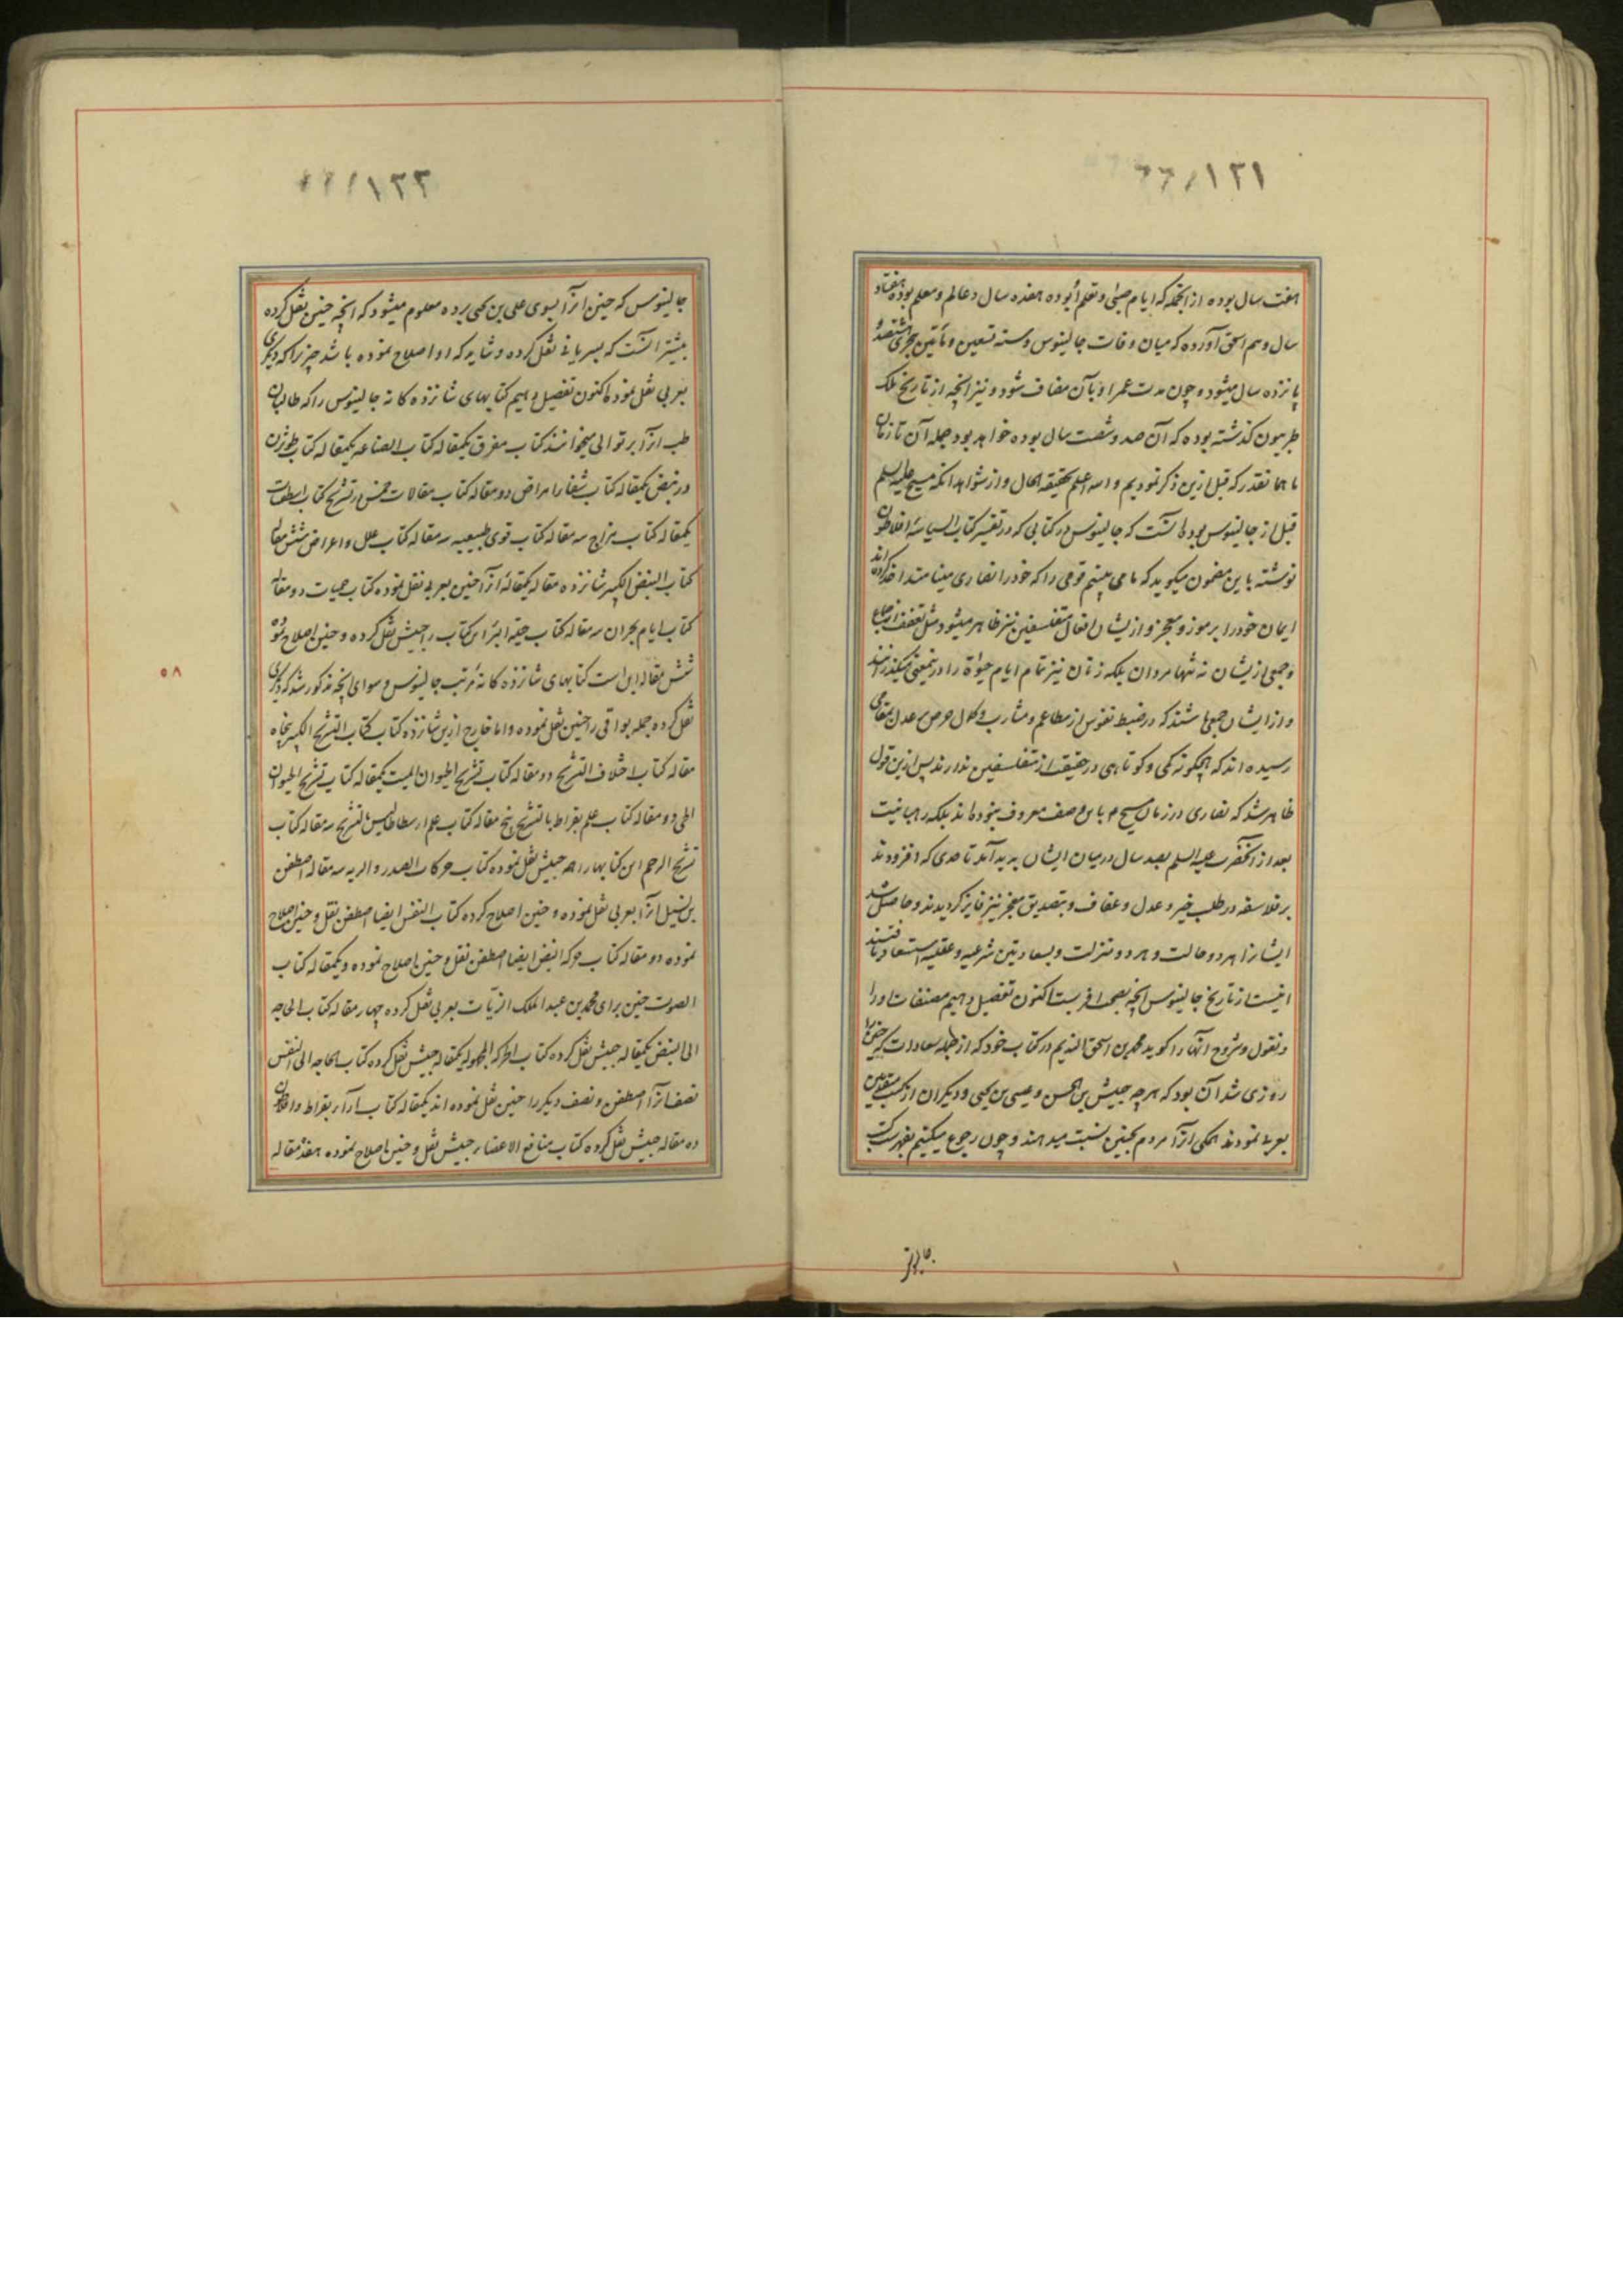 ١٢١
هفت سال بوده از آنجمله که ایام صبی و تعلم او بوده هفده سال و عالم و معلم بوده هفتاد
سال و هم اسحق آورده که میان وفات جالینوس و سنه تسعین و مأتین هجری هشتصد و
پانزده سال میشود و چون مدت عمر او بآن مضاف شود و نیز آنچه از تاریخ ملک
طریبون گذشته بوده که آن صد و شصت سال بوده خواهد بود جمله آن تا زمان
ما همانقدر که قبل ازین ذکر نمودیم و الله اعلم بحقیقه الحال و از شواهد آنکه مسیح علیه السلم
قبل از جالینوس بوده آنست که جالینوس در کتابی که در تفسیر کتاب السیاسة افلاطون
نوشته باین مضمون میگوید که ما می بینیم قومی را که خود را نصاری مینامند اخذ کرده اند
ایمان خود را بر موز و معجز و ازیشان افعال متفلسفین نیز ظاهر میشود مثل تعفف از جماع
و جمعی ازیشان نه تنها مردان بلکه زنان نیز تمام ایام حیوة را در تمعنی میگذرانند
و از ایشان جمعی باشند که در ضبط نفوس از مطاعم و مشارب و کمال حرص بر عدل بمقامی
رسیده اند که هیچگونه کمی و کوتاهی در حقیقت از متفلسفین ندارند پس ازین قول
ظاهر شد که نصاری در زمان مسیح م باین وصف معروف نبوده اند بلکه رهبانیت
بعد از آنحضرت علیه السلم بصد سال در میان ایشان پدید آمد تا حدی که افزودند
بر فلاسفه در طلب خیر و عدل و عفاف و بتصدیق معجز نیز فایز گردیدند و حاصل شد
ایشانرا هر دو حالت و هر دو منزلت و بسعادتین شرعیه و عقلیه استسعاد یافتند
اینست از تاریخ جالینوس آنچه بصحت اقربست اکنون تفصیل دهیم مصنفات او را
و نقول و شروح آنها را گوید محمد بن اسحق الندیم در کتاب خود که از جمله سعادات که حنین را
روزی شد آن بود که هر چه حبیش بن الحسن و عیسی بن یحیی و دیگران از کتب متقدمین
بعربی نمودند همگی از آن مردم بحنین نسبت میدهند و چون رجوع میکنیم بفهرست کتب
١٢٢
جالینوس که حنین آنرا بسوی علی بن یحیی برده معلوم میشود که آنچه حنین نقل کرده
بیشتر آنست که بسریانی نقل کرده و شاید که او اصلاح نموده باشد چیزیرا که دیگری
بعربی نقل نموده اکنون تفصیل دهیم کتابهای شانزده گانه جالینوس را که طالبان
طب آنرا بر توالی میخوانند کتاب مفرق یکمقاله کتاب الصناعه یکمقاله کتاب طوثرن
در نبض یکمقاله کتاب شفاء امراض دو مقاله کتاب مقالات خمس در تشریح کتاب اسطقسات
یکمقاله کتاب مزاج سه مقاله کتاب قوی طبیعیه سه مقاله کتاب علل و اعراض شش مقاله
کتاب النبض الکبیر شانزده مقاله یکمقاله از آنرا حنین بعربی نقل نموده کتاب حمیات دو مقاله
کتاب ایام بحران سه مقاله کتاب حیلة البرء این کتاب را حبیش نقل کرده و حنین اصلاح نموده
شش مقاله این است کتابهای شانزده گانه مرتب جالینوس و سوای آنچه مذکور شد که دیگری
نقل کرده جمله بواقی را حنین نقل نموده و اما خارج ازین شانزده کتاب کتاب التشریح الکبیر پنجاه
مقاله کتاب اختلاف التشریح دو مقاله کتاب تشریح الحیوان المیت یکمقاله کتاب تشریح الحیوان
الحی دو مقاله کتاب علم بقراط بالتشریح پنج مقاله کتاب علم ارسطاطالیس بالتشریح سه مقاله کتاب
تشریح الرحم این کتابها را همه حبیش نقل نموده کتاب حرکات الصدر و الریه سه مقاله اصطفن
بن بسیل آنرا بعربی نقل نموده و حنین اصلاح کرده کتاب النفس ایضا اصطفن نقل و حنین اصلاح
نموده دو مقاله کتاب حرکه النبض ایضا اصطفن نقل و حنین اصلاح نموده و یکمقاله کتاب
الصوت حنین برای محمد بن عبد الملک الزیات بعربی نقل کرده چهار مقاله کتاب الحاجه
الی النبض یکمقاله حبیش نقل کرده کتاب الحرکه المجهوله یکمقاله حبیش نقل کرده کتاب الحاجه الی النفس
نصف آنرا اصطفن و نصف دیگر را حنین نقل نموده اند یکمقاله کتاب آراء بقراط و افلاطون
ده مقاله حبیش نقل کرده کتاب منافع الاعضاء حبیش نقل و حنین اصلاح نموده هفده مقاله
٥٨